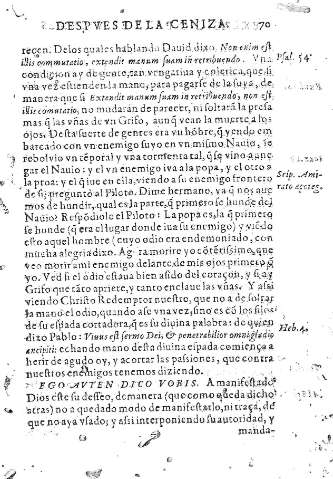 DESPVES DE LA CENIZA. 70
recen. De los quales hablando Dauid dixo. Non enim est
illis commutatio, extendit manum suam in retribuendo. Vna
condicion ay de gente, tan vengatiua y colerica, que si
vna vez estienden la mano, para pagarse de la suya, de
manera que si Extendit manum suam in retribuendo, non est
illis cõmutatio, no mudarán de parecer, ni soltarà la presa
mas q̃ las vñas de vn Grifo, aunq̃ vean la muerte a los
ojos. Desta suerte de gentes era vn hõbre, q̃ yendo em
barcado con vn enemigo suyo en vn mismo Nauio, se
rebolvio vn tẽporal y vna tormenta tal, q̃ se vino a ane-
gar el Nauio: y el vn enemigo iva a la popa, y el otro a
la proa: y el que en ella, viendo a su enemigo frontero
de si, preguntò al Piloto. Dime hermano, ya q̃ nos aue-
mos de hundir, qual es la parte, q̃ primero se hunde del
Nauio? Respõdiole el Piloto: La popa es, la q̃ primero
se hunde (q̃ era el lugar donde iua su enemigo) y viẽdo
esto aquel hombre (cuyo odio era endemoniado, con
mucha alegria dixo. Agora morire yo cõtẽtissimo, que
veo morir a mi enemigo delante de mis ojos primero q̃
yo. Ved si el odio estaua bien asido del coraçon, y si ay
Grifo que tãto apriete, y tanto enclaue las vñas. Y assi
viendo Christo Redemptor nuestro, que no a de soltar
la mano el odio, quando ase vna vez, sino es cõ los filos
de su espada cortadora, q̃ es su diuina palabra: de quien
dixo Pablo: Viuus est sermo Dei, & penetrabilior omni gladio
ancipiti: echando mano desta diuina espada comiença a
herir de agudo oy, y acortar las passiones, que contra
nuestros enemigos tenemos diziendo.
EGO AVTEN DICO VOBIS. A manifestado
Dios este su desseo, de manera (que como queda dicho
atras) no a quedado modo de manifestarlo, ni traça, de
que no aya vsado; y assi interponiendo su autoridad, y
manda-
Psal. 54.
Scip. Ami-
Heb. 4.